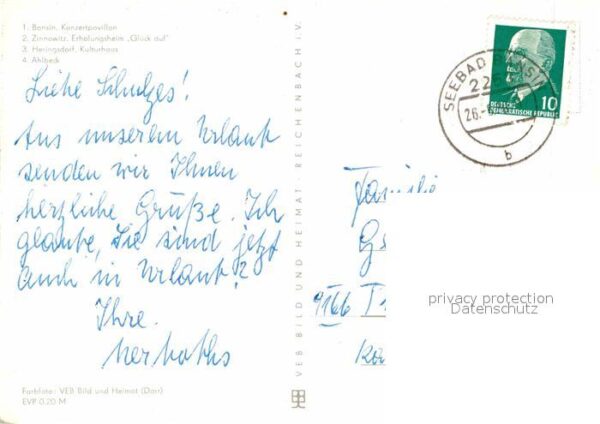 1. Bansin, Konzertpavillon
2. Zinnowitz, Erholungsheim „Glück auf"
3. Heringsdorf, Kulturhaus
4. Ahlbeck
Liebe Schulzes!
Aus unserem Urlaub
senden wir Ihnen
herzliche Grüße. Ich
glaube, Sie sind jetzt
auch in Urlaub?
Ihre
Farbfoto: VEB Bild und Heimat (Darr)
EVP 0,20 M
VEB BILD UND HEIMAT · REICHENBACH i. V.
SEEBAD BANSIN
225
26.
b
10
DEUTSCHE
DEMOKRATISCHE REPUBLIK
Familie
9166
privacy protection
Datenschutz